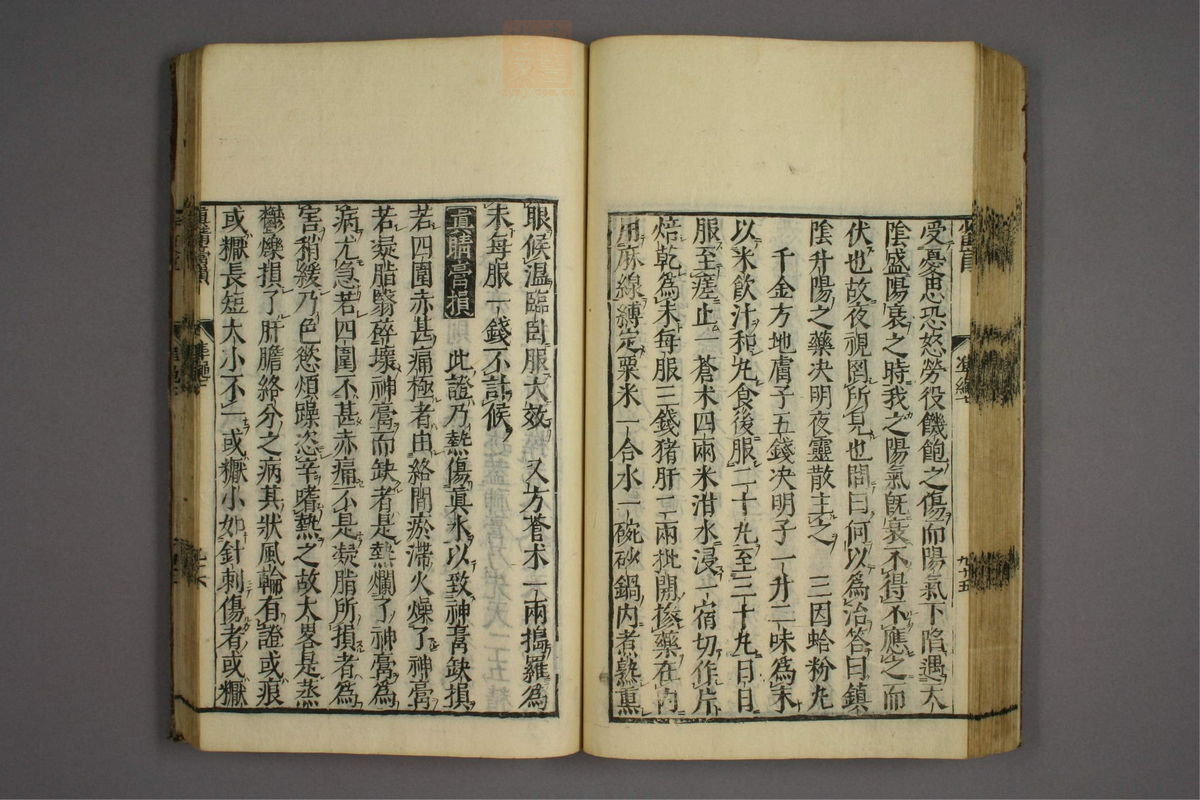 受憂思恐怒勞役饑飽之傷而陽氣下陷遇天
陰盛陽衰之時我之陽氣旣衰不得不應之而
伏也故夜視罔所見也問曰何以爲治答曰鎮
陰升陽之藥决明夜靈散主之 三因蛤粉丸
千金方地膚子五錢决明子一升二味爲末
以米飲汁和丸食後服二十丸至三十丸日日
服至瘥止一蒼术四兩米泔水浸一宿切作片
焙乾爲末每服三錢猪肝二兩批開摻藥在內
用麻線縛定粟米一合水一碗砂鍋內煮熟熏
眼候温臨卧服大效 又方蒼术一兩搗羅爲
末每服一錢不計候
眞睛膏損 此證乃熱傷眞水以致神膏缺損
若四圍赤甚痛極者由絡間瘀滯火燥了神膏
若凝脂翳碎壞神膏而缺者是熱爛了神膏爲
病尤急若四圍不甚赤痛不是凝脂所損者爲
害稍緩乃色慾煩躁恣辛嗜熱之故大畧是蒸
鬱爍損了肝膽絡分之病其狀風輪有證或痕
或㿜長短大小不一或㿜小如針刺傷者或㿜